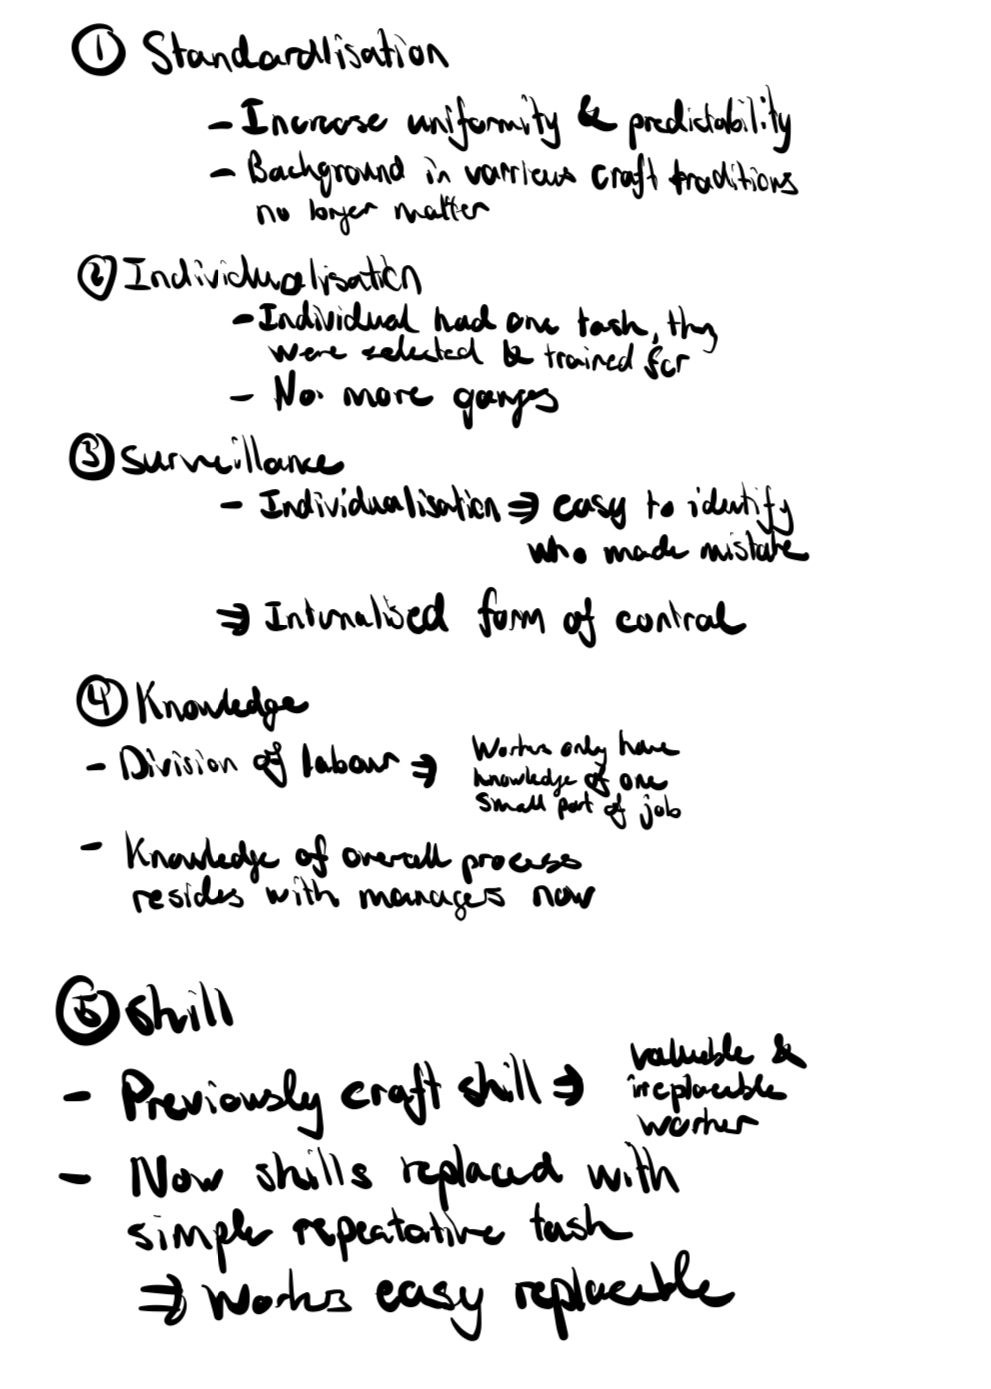 ① Standardisation
- Increase uniformity & predictability
- Background in varrious craft traditions
no longer matter
② Individualisation
- Individual had one task, they
were selected & trained for
- No more ganges
③ Surveillance
- Individualisation ⇒ easy to identify
who made mistake
⇒ Internalised form of control
④ Knowledge
- Division of labour ⇒ Workers only have
knowledge of one
small part of job
- Knowledge of overall process
resides with managers now
⑤ Skill
- Previously craft skill ⇒ valuable &
irreplaceable
worker
- Now skills replaced with
simple repeatative task
⇒ Workers easy replaceable